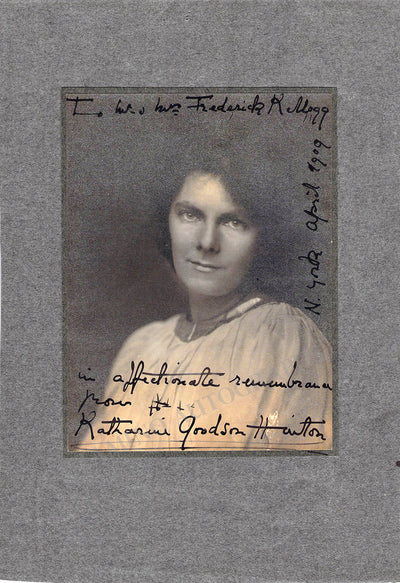 To Mr & Mrs Frederick Kellogg
N. York April 1909
in affectionate remembrance
from
Katharine Goodson Hinton